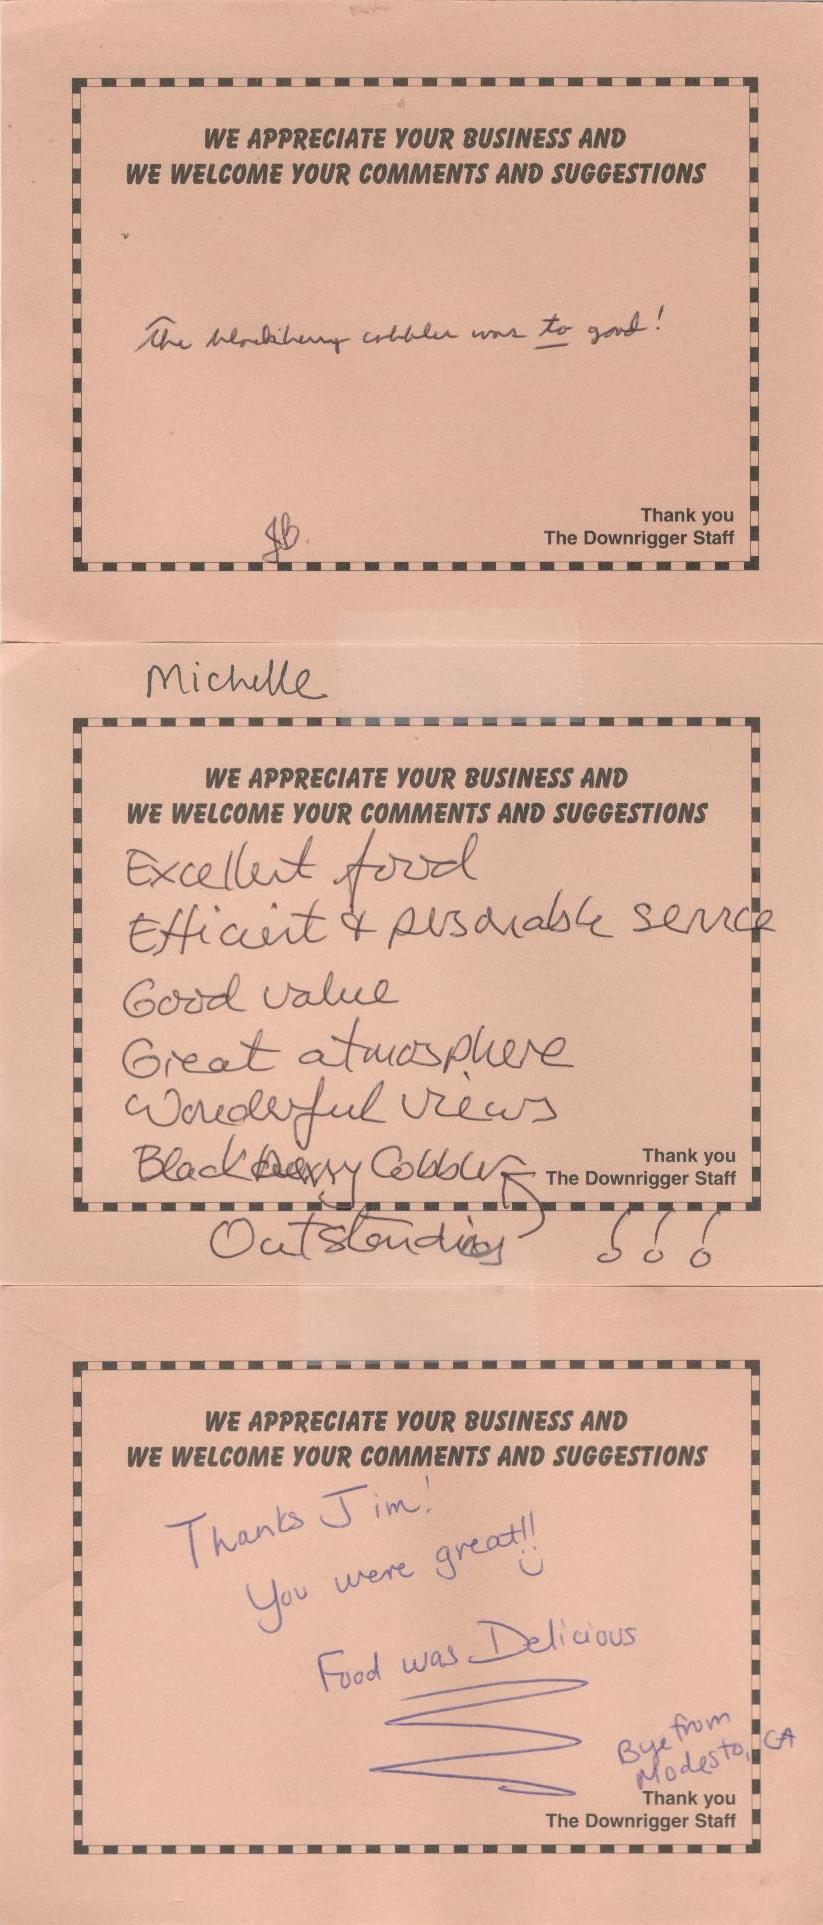 WE APPRECIATE YOUR BUSINESS AND
WE WELCOME YOUR COMMENTS AND SUGGESTIONS
The blackberry cobbler was to good!
JB.
Thank you
The Downrigger Staff
Michelle
WE APPRECIATE YOUR BUSINESS AND
WE WELCOME YOUR COMMENTS AND SUGGESTIONS
Excellent food
Efficient & personable service
Good value
Great atmosphere
Wonderful views
Blackberry Cobbler
Thank you
The Downrigger Staff
Outstanding !!!
WE APPRECIATE YOUR BUSINESS AND
WE WELCOME YOUR COMMENTS AND SUGGESTIONS
Thanks Jim!
You were great!!
Food was Delicious
Bye from
Modesto, CA
Thank you
The Downrigger Staff